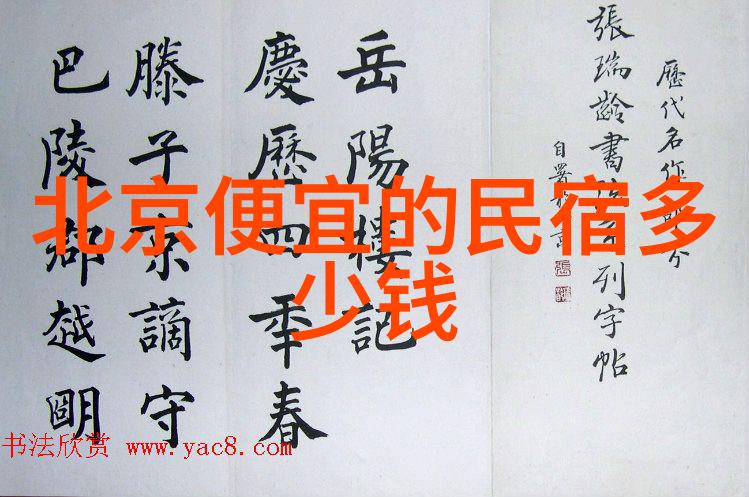 歷代名作部分
張瑞齡書法系列字帖
自署
岳陽樓記
慶歷四年春
滕子京謫守
巴陵郡越明
北京便宜的民宿多
少钱
书法欣赏 www.yac8.com